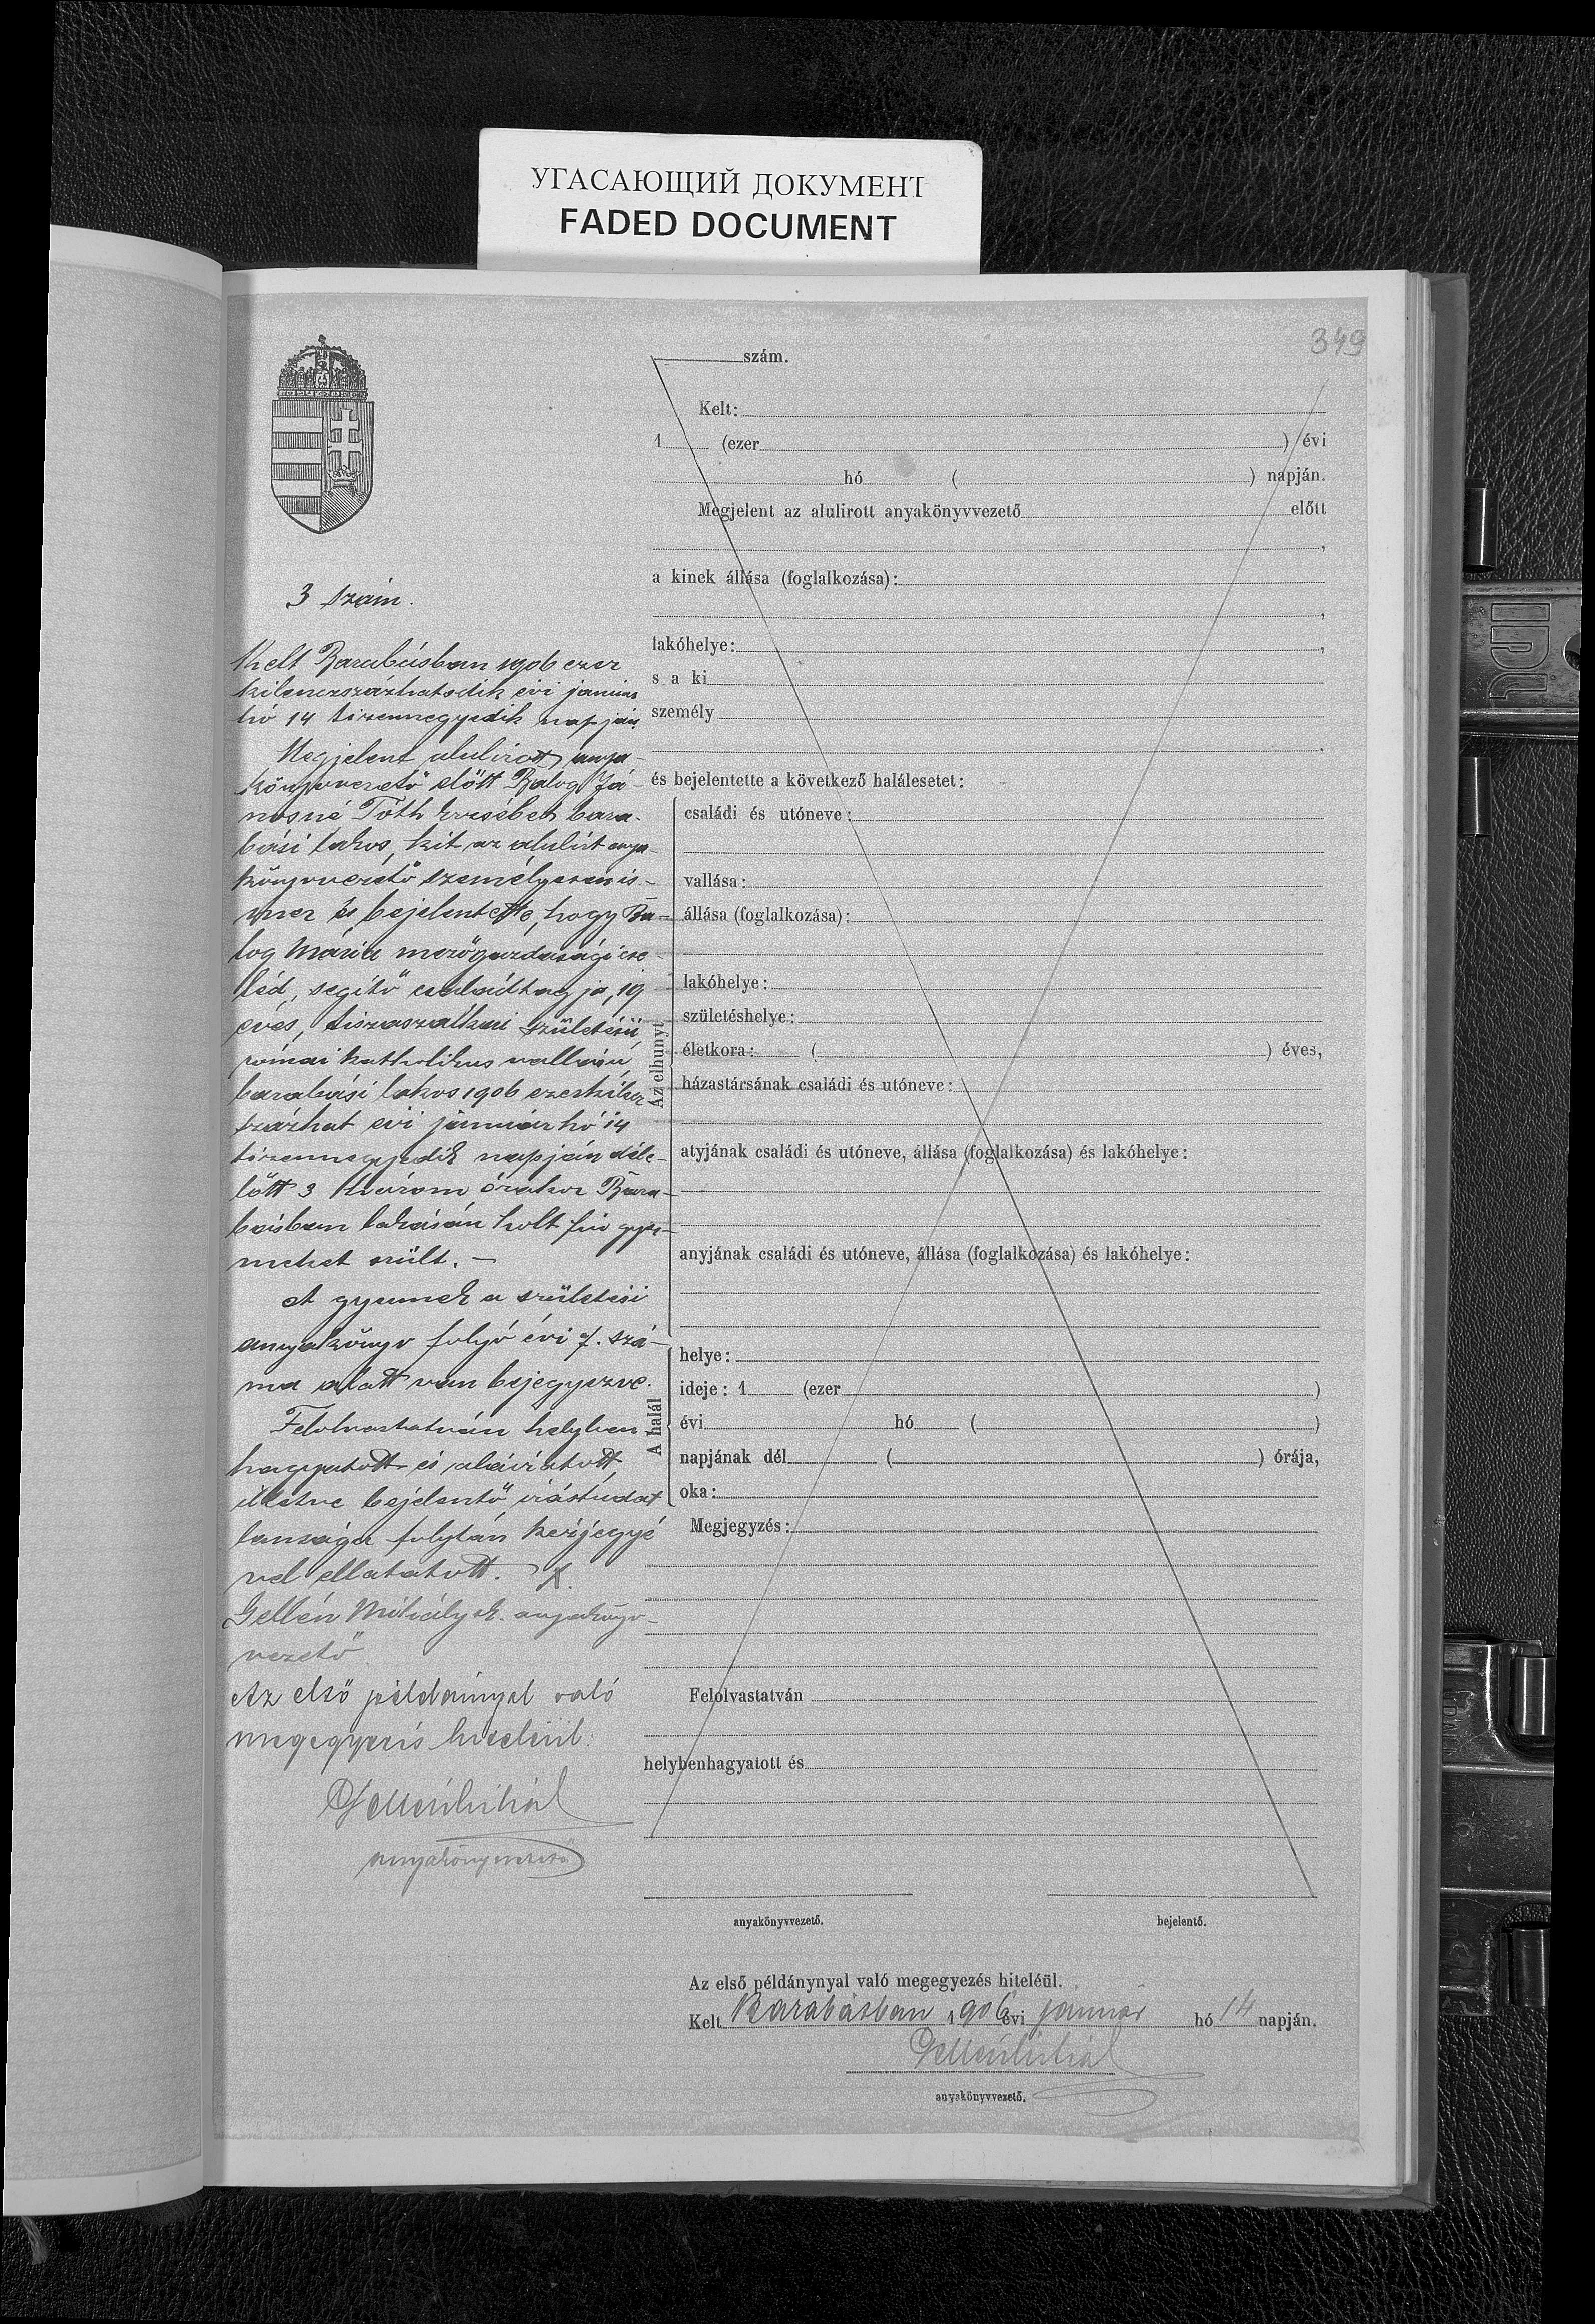 УГАСАЮЩИЙ ДОКУМЕНТ
FADED DOCUMENT
349
3 szám.
Kelt Barabásban 1906 ezer
kilenczszázhatodik évi január
hó 14 tizennegyedik napján
Megjelent alulirott anya-
könyvvezető előtt Balog Já-
nosné Tóth Erzsébet bara-
bási lakos, kit az alulirt anya-
könyvvezető személyesen is-
mer és bejelentette, hogy Ba-
log Mária mezőgazdasági cse-
léd, segítő családtagja, 19
éves, tiszaszalkai születésü,
római katholikus vallásu,
barabási lakos 1906 ezerkilencz
százhat évi január hó 14
tizennegyedik napján déle-
lőtt 3 három órakor Bara-
básban lakásán holt fiu gyer-
meket szült. -
A gyermek a születési
anyakönyv folyó évi 7. szá-
ma alatt van bejegyezve.
Felolvastatván helyben
hagyatott és aláiratott,
illetve bejelentő irástudat
lansága folytán kézjegyé
vel ellatatott. X.
Gellén Mihály sk. anyakönyv-
vezető
Az első példánnyal való
megegyezés hiteléül:
Gellén Mihál
anyakönyvvezető
szám.
Kelt:
1 (ezer ) évi
hó ( ) napján.
Megjelent az alulirott anyakönyvvezető előtt
,
a kinek állása (foglalkozása):
,
lakóhelye: ,
s a ki
személy
.
és bejelentette a következő halálesetet:
Az elhunyt
családi és utóneve:
vallása:
állása (foglalkozása):
lakóhelye:
születéshelye:
életkora: ( ) éves,
házastársának családi és utóneve:
atyjának családi és utóneve, állása (foglalkozása) és lakóhelye:
anyjának családi és utóneve, állása (foglalkozása) és lakóhelye:
A halál
helye:
ideje: 1 (ezer )
évi hó ( )
napjának dél ( ) órája,
oka:
Megjegyzés:
Felolvastatván
helybenhagyatott és
anyakönyvvezető. bejelentő.
Az első példánynyal való megegyezés hiteléül.
Kelt Barabásban 1906 évi január hó 14 napján.
Gellén Mihál
anyakönyvvezető.